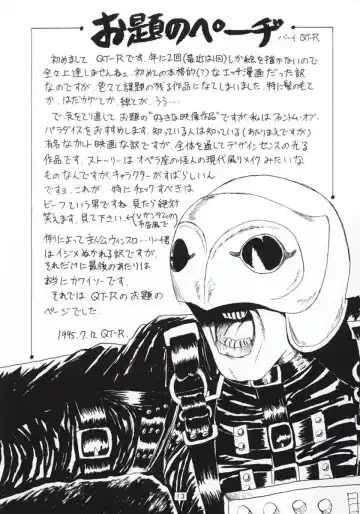 お題のページ
バーイ QT-R
初めまして QT-Rです。年に2回(最近は1回)しか絵を描かないので
全々上達しませんねェ。初めての本格的(?)なエッチ漫画だった訳
なのですが、色々と課題の残る作品になってしまいました。特に髪の毛と
か、はだかグとか、線とか、うう…
で、気をとり直して お題の"好きな映像作品"ですが 私はファントム・オブ・
パラダイスをおすすめします。知っている人は知っている(あたりまえですが)
有名なカルト映画な訳ですが、全体を通してデザインセンスの光る
作品です。ストーリーは オペラ座の怪人の現代風リメイクみたいな
ものなんですが、キャラクターがすばらしいん
ですョ。これが、特にチェックすべきは
ビーフという男ですね。見たら絶対
笑えます。見て下さい。(Vガンダムの予告風で)
例によって主人公ウィンスロー・リーチ君
はイジメぬかれる訳ですが、
それだけに最後のあたりは
本当にカワイソーです。
それでは QT-Rのお題の
ページでした。
1995.7.12 QT-R.
73